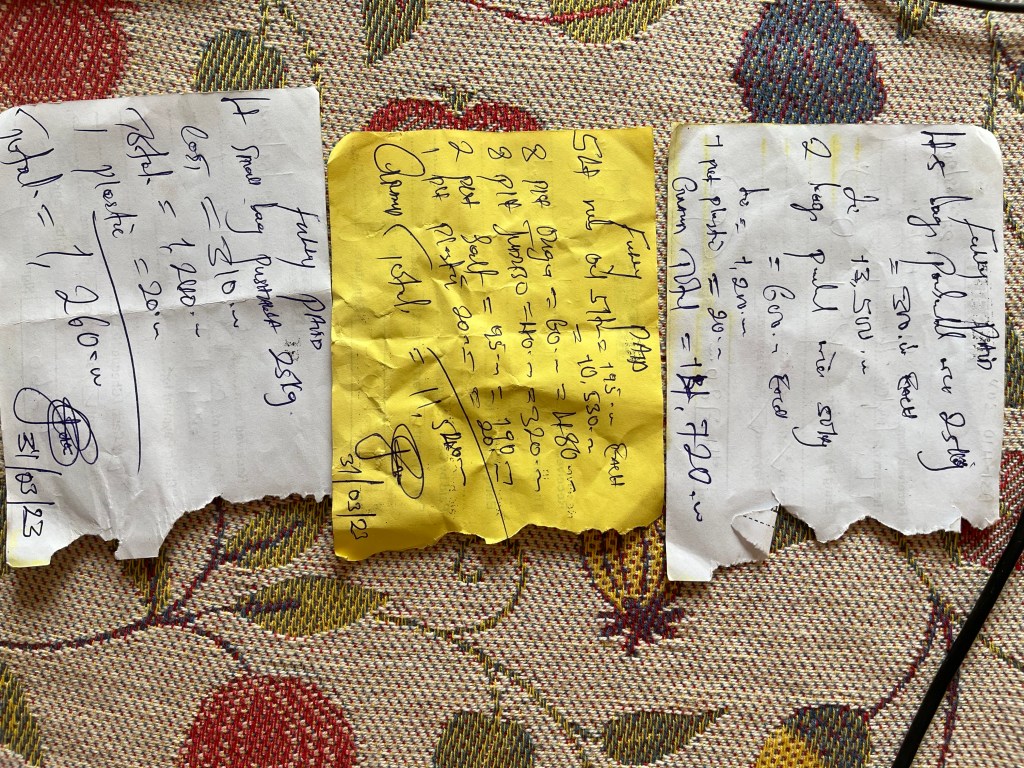 Fully PAID
4 small bag 25kg.
Cost = 310 =
Total = 1,240 =
1 plastic = 20 =
Total = 1,260 =
31/03/23
Fully PAID
54 = 195 = Each
= 10,530 =
8 plt = 60 = 480 =
8 plt Jumbo = 40 = 320 =
2 plt Salt = 95 = 190 =
1 plt plastic 20 = 20 =
Grand Total = 11,540 =
31/03/23
Fully PAID
45 bags rice 25kg
= 300 = Each
13,500 =
2 bag rice 50kg
= 600 = Each
= 1,200 =
1 plastic = 20 =
Grand Total = 14,720 =